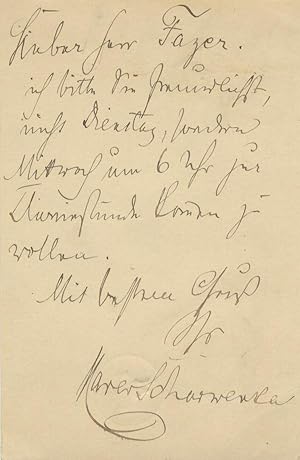 Lieber Herr Fazer.
ich bitte Sie freundlichst,
nicht Dienstag, sondern
Mittwoch um 6 Uhr zur
Clavierstunde kommen zu
wollen.
Mit bestem Gruß
Ihr
Xaver Scharwenka